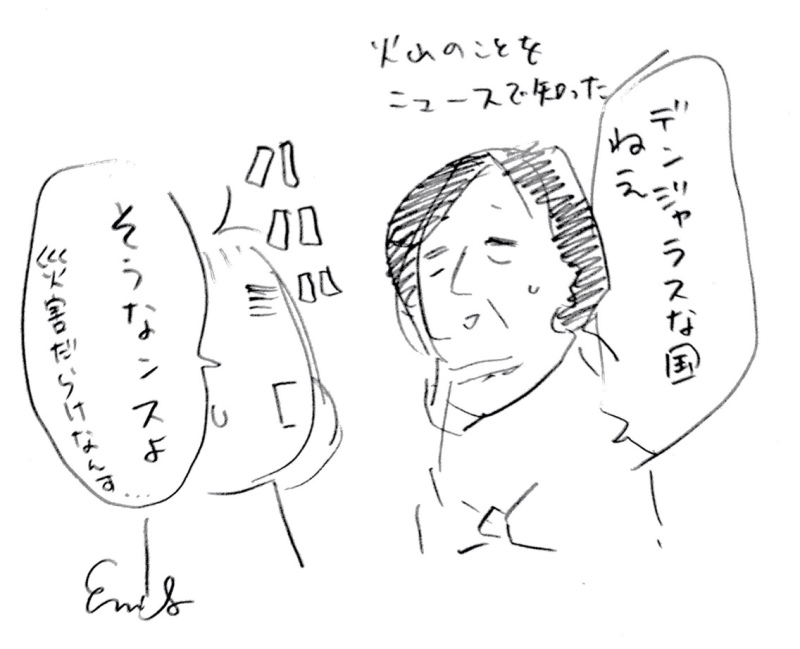 火山のことを
ニュースで知った
デンジャラスな国
ねえ
そうなンスよ
災害だらけなんす…